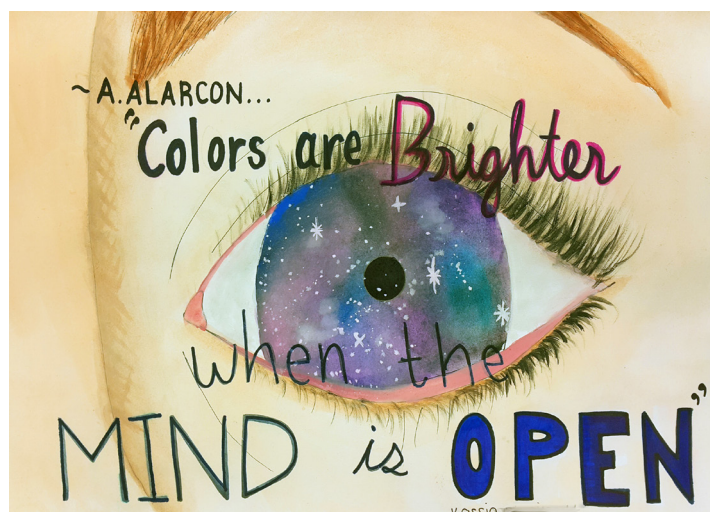 ~A.ALARCON...
"Colors are Brighter
when the
MIND is OPEN"